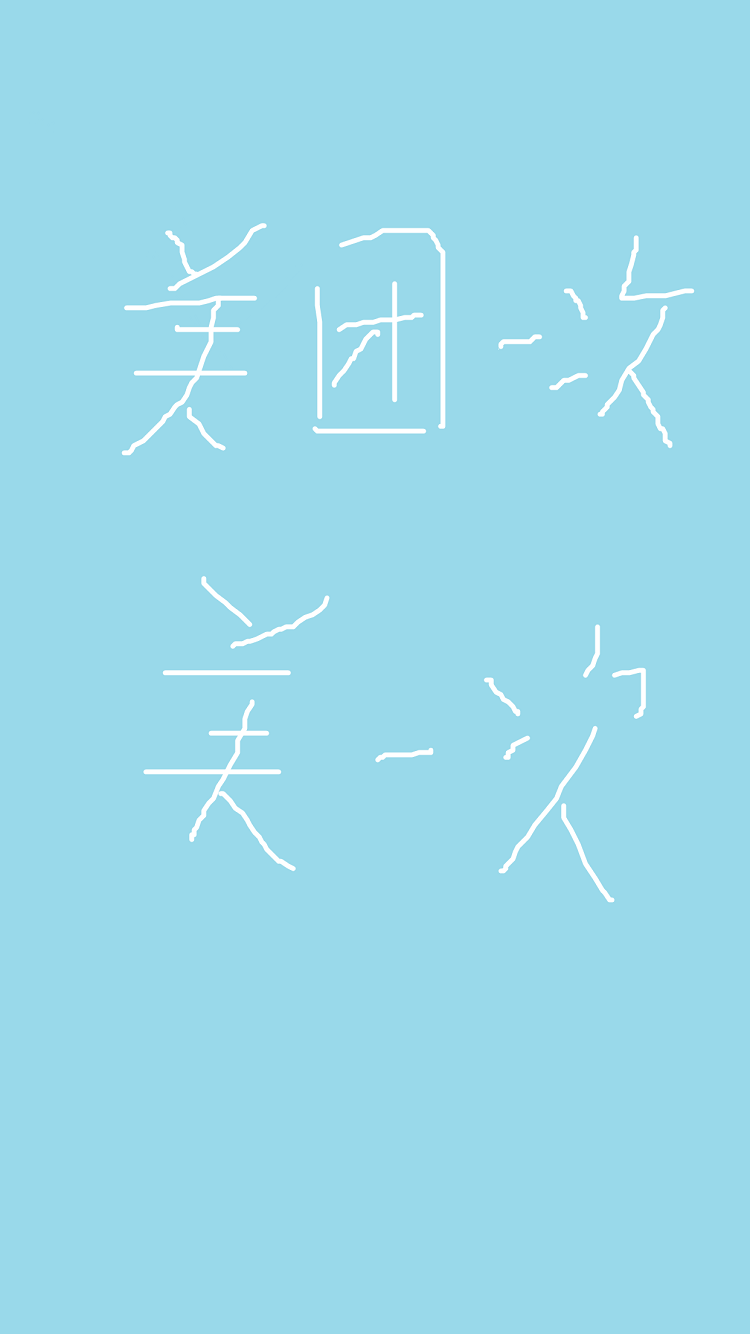 美团一次
美一次